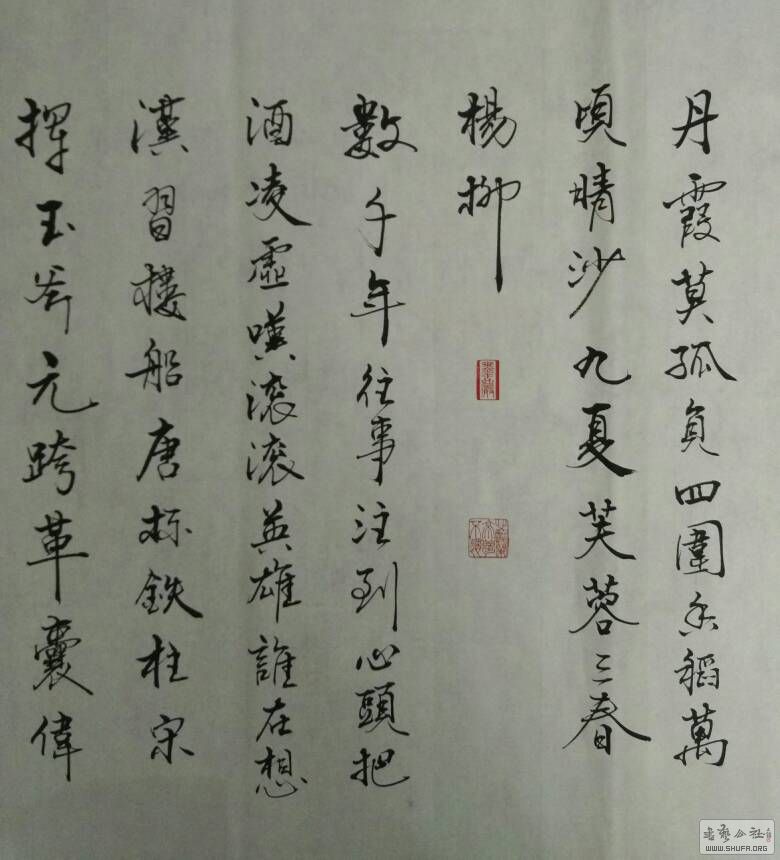 丹霞莫孤負四圍香稻萬
頃晴沙九夏芙蓉三春
楊柳
數千年往事注到心頭把
酒凌虛嘆滾滾英雄誰在想
漢習樓船唐标鉄柱宋
揮玉斧元跨革囊偉
书艺公社
WWW.SHUFA.ORG